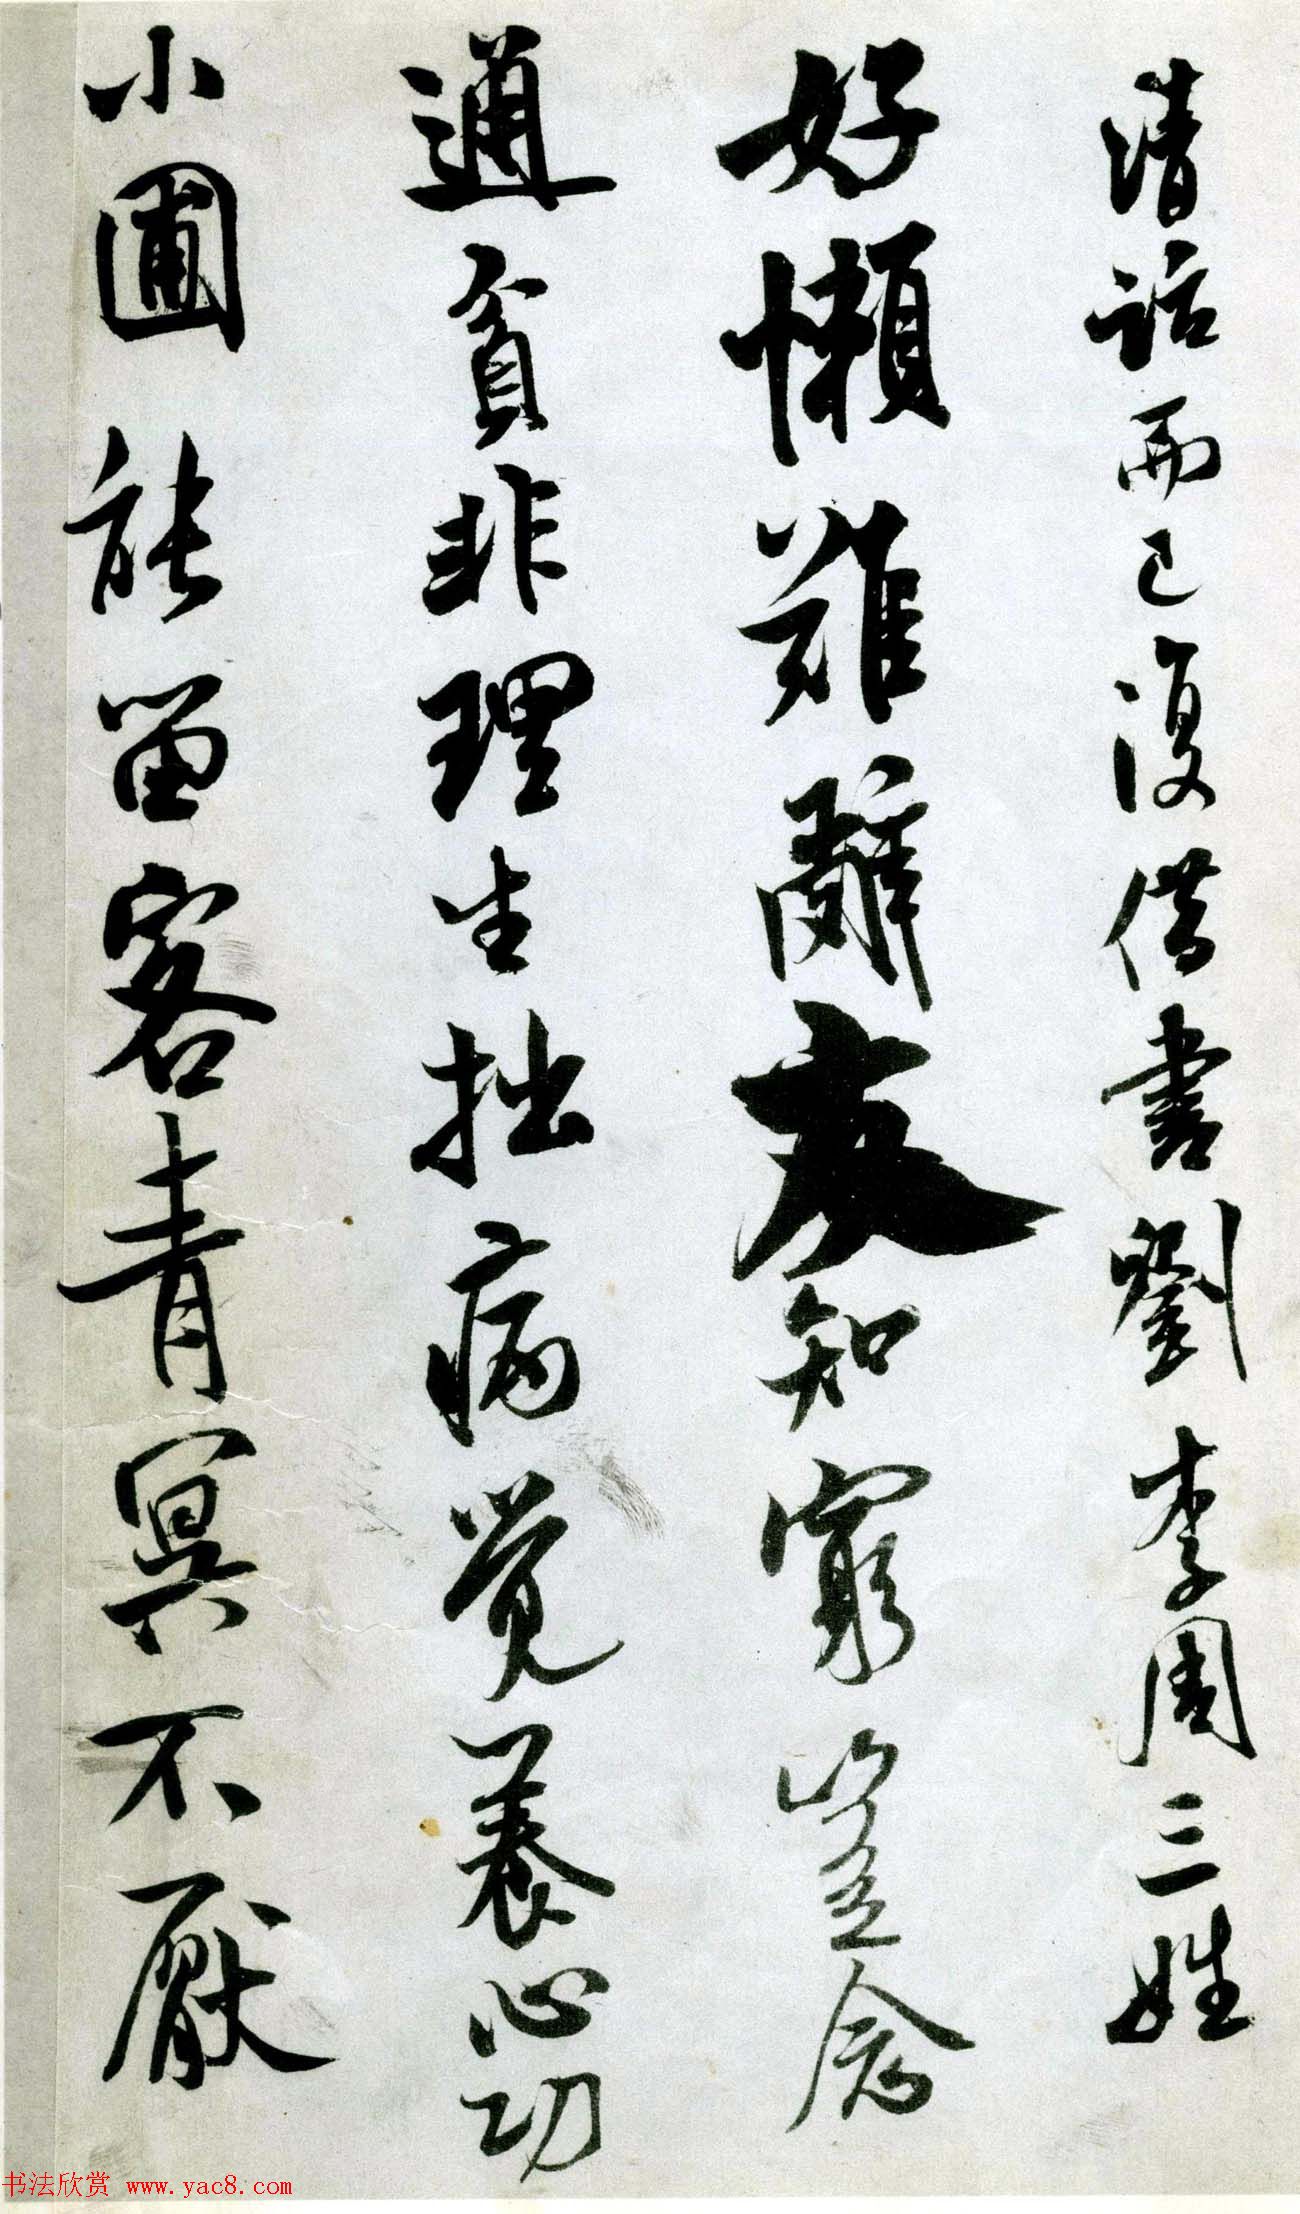 清話而已復借書劉李周三姓
好懶難辭友知窮豈念
通貧非理生拙病覺養心功
小圃能留客青冥不厭
书法欣赏 www.yac8.com